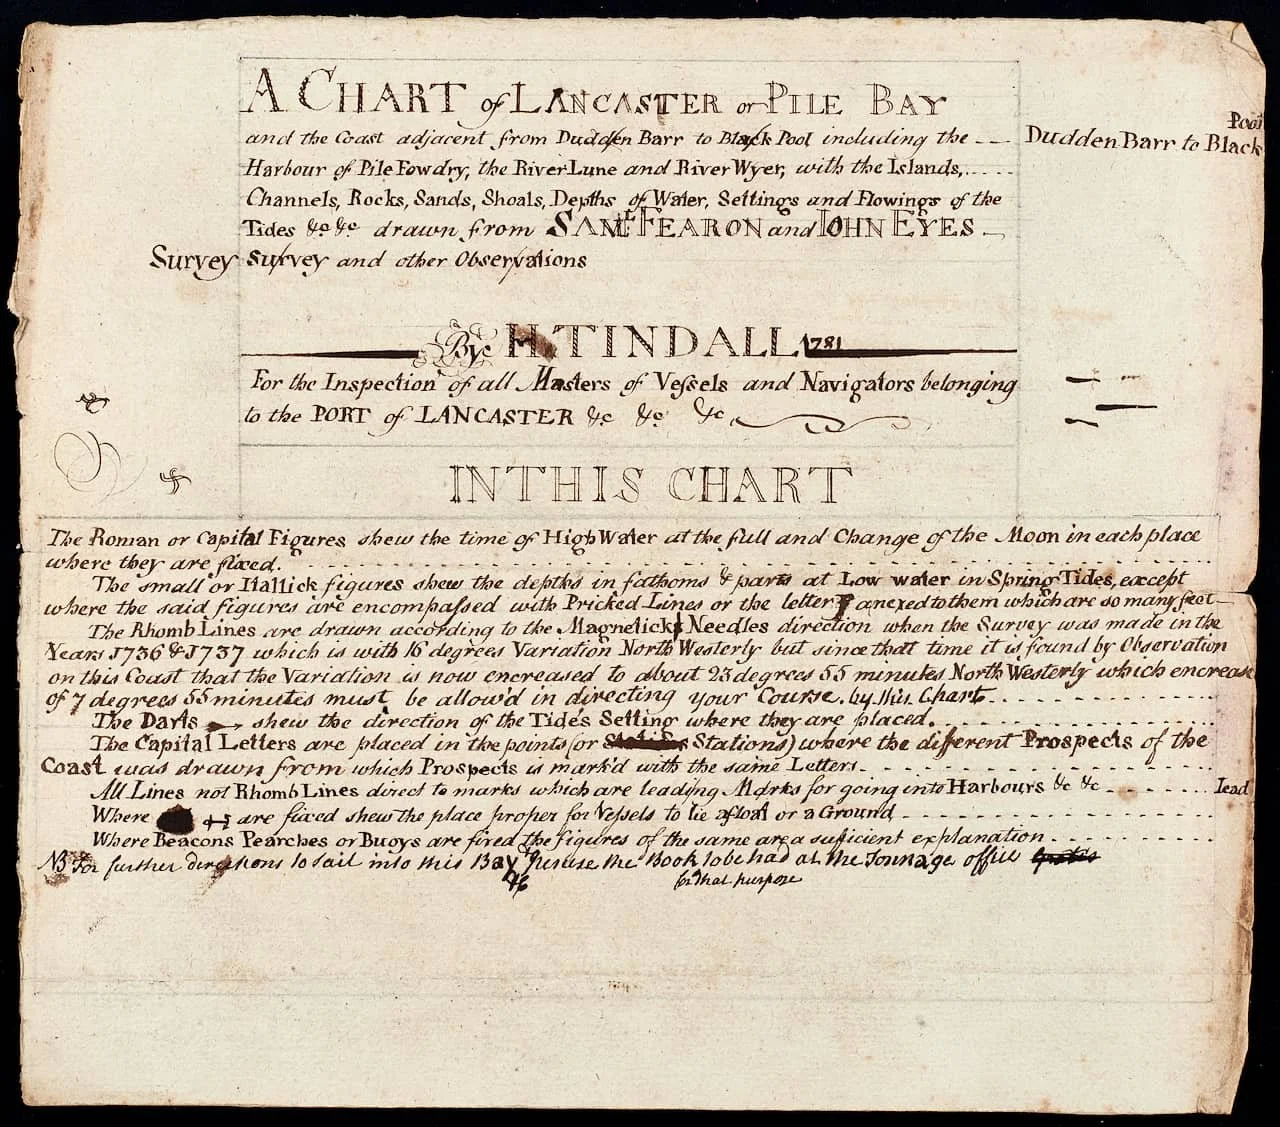 A CHART of LANCASTER or PILE BAY
and the Coast adjacent from Dudden Barr to Black Pool including the
Pool
Dudden Barr to Black
Harbour of Pile Fowdry, the River Lune and River Wyer, with the Islands,
Channels, Rocks, Sands, Shoals, Depths of Water, Settings and Flowings of the
Tides &c &c drawn from SAMt FEARON and IOHN EYES
Survey Survey and other Observations
By H. TINDALL 1781
For the Inspection of all Masters of Vessels and Navigators belonging
to the PORT of LANCASTER &c &c &c
IN THIS CHART
The Roman or Capital Figures shew the time of High Water at the full and Change of the Moon in each place
where they are fixed.
The small or Itallick figures shew the depths in fathoms & parts at Low water in Spring Tides, except
where the said figures are encompassed with Pricked Lines or the letter F anexed to them which are so many feet
The Rhomb Lines are drawn according to the Magnetick Needles direction when the Survey was made in the
Years 1736 & 1737 which is with 16 degrees Variation North Westerly but since that time it is found by Observation
on this Coast that the Variation is now encreased to about 23 degrees 55 minutes North Westerly which encrease
of 7 degrees 55 minutes must be allow'd in directing your Course by this Chart
The Darts shew the direction of the Tides Setting where they are placed.
The Capital Letters are placed in the points (or Stations) where the different Prospects of the
Coast was drawn from which Prospects is mark'd with the same Letters
All Lines not Rhomb Lines direct to marks which are leading Marks for going into Harbours &c &c
Lead
Where are fixed shew the place proper for Vessels to lie afloat or a Ground
Where Beacons Pearches or Buoys are fixed the figures of the same are a sufficient explanation
NB For further directions to sail into this Bay &c peruse the Book to be had at the Tonnage office
for that purpose